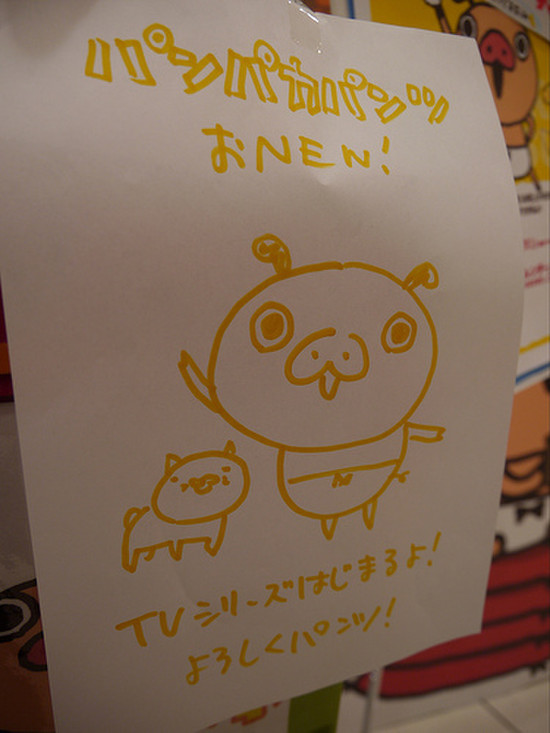 パンパカパンツ
おNEW!
TVシリーズはじまるよ!
よろしくパンツ!